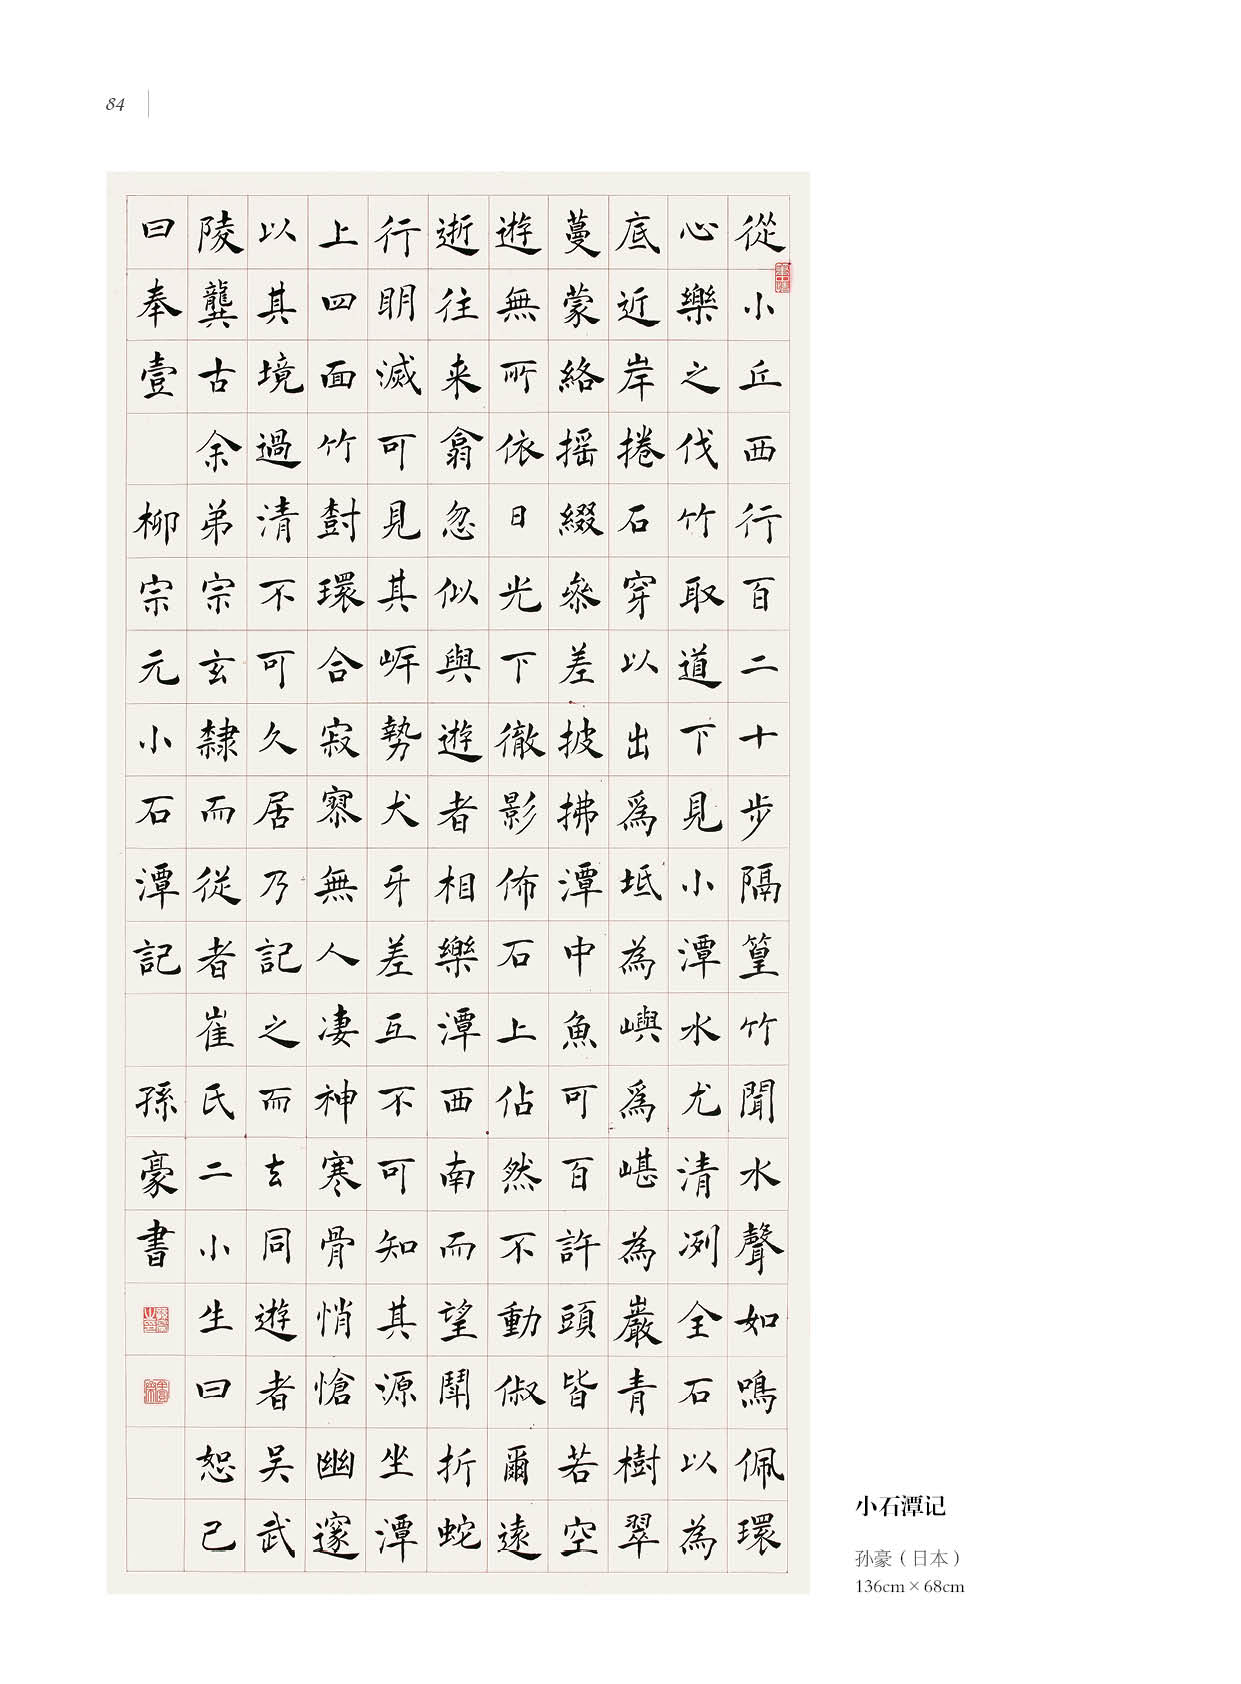 84
從小丘西行百二十步隔篁竹聞水聲如鳴佩環
心樂之伐竹取道下見小潭水尤清冽全石以為
底近岸捲石穿以出爲坻為嶼爲嵁為巖青樹翠
蔓蒙絡摇綴叅差披拂潭中魚可百許頭皆若空
遊無所依日光下徹影佈石上佁然不動俶爾遠
逝往来翕忽似與遊者相樂潭西南而望鬭折蛇
行明滅可見其岸勢犬牙差互不可知其源坐潭
上四面竹樹環合寂寥無人凄神寒骨悄愴幽邃
以其境過清不可久居乃記之而去同遊者吴武
陵龔古余弟宗玄隸而從者崔氏二小生曰恕己
曰奉壹 柳宗元小石潭記 孫豪書
小石潭记
孙豪（日本）
136cm×68cm